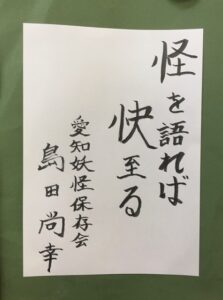 怪を語れば
快至る
愛知妖怪保存会
島田尚幸